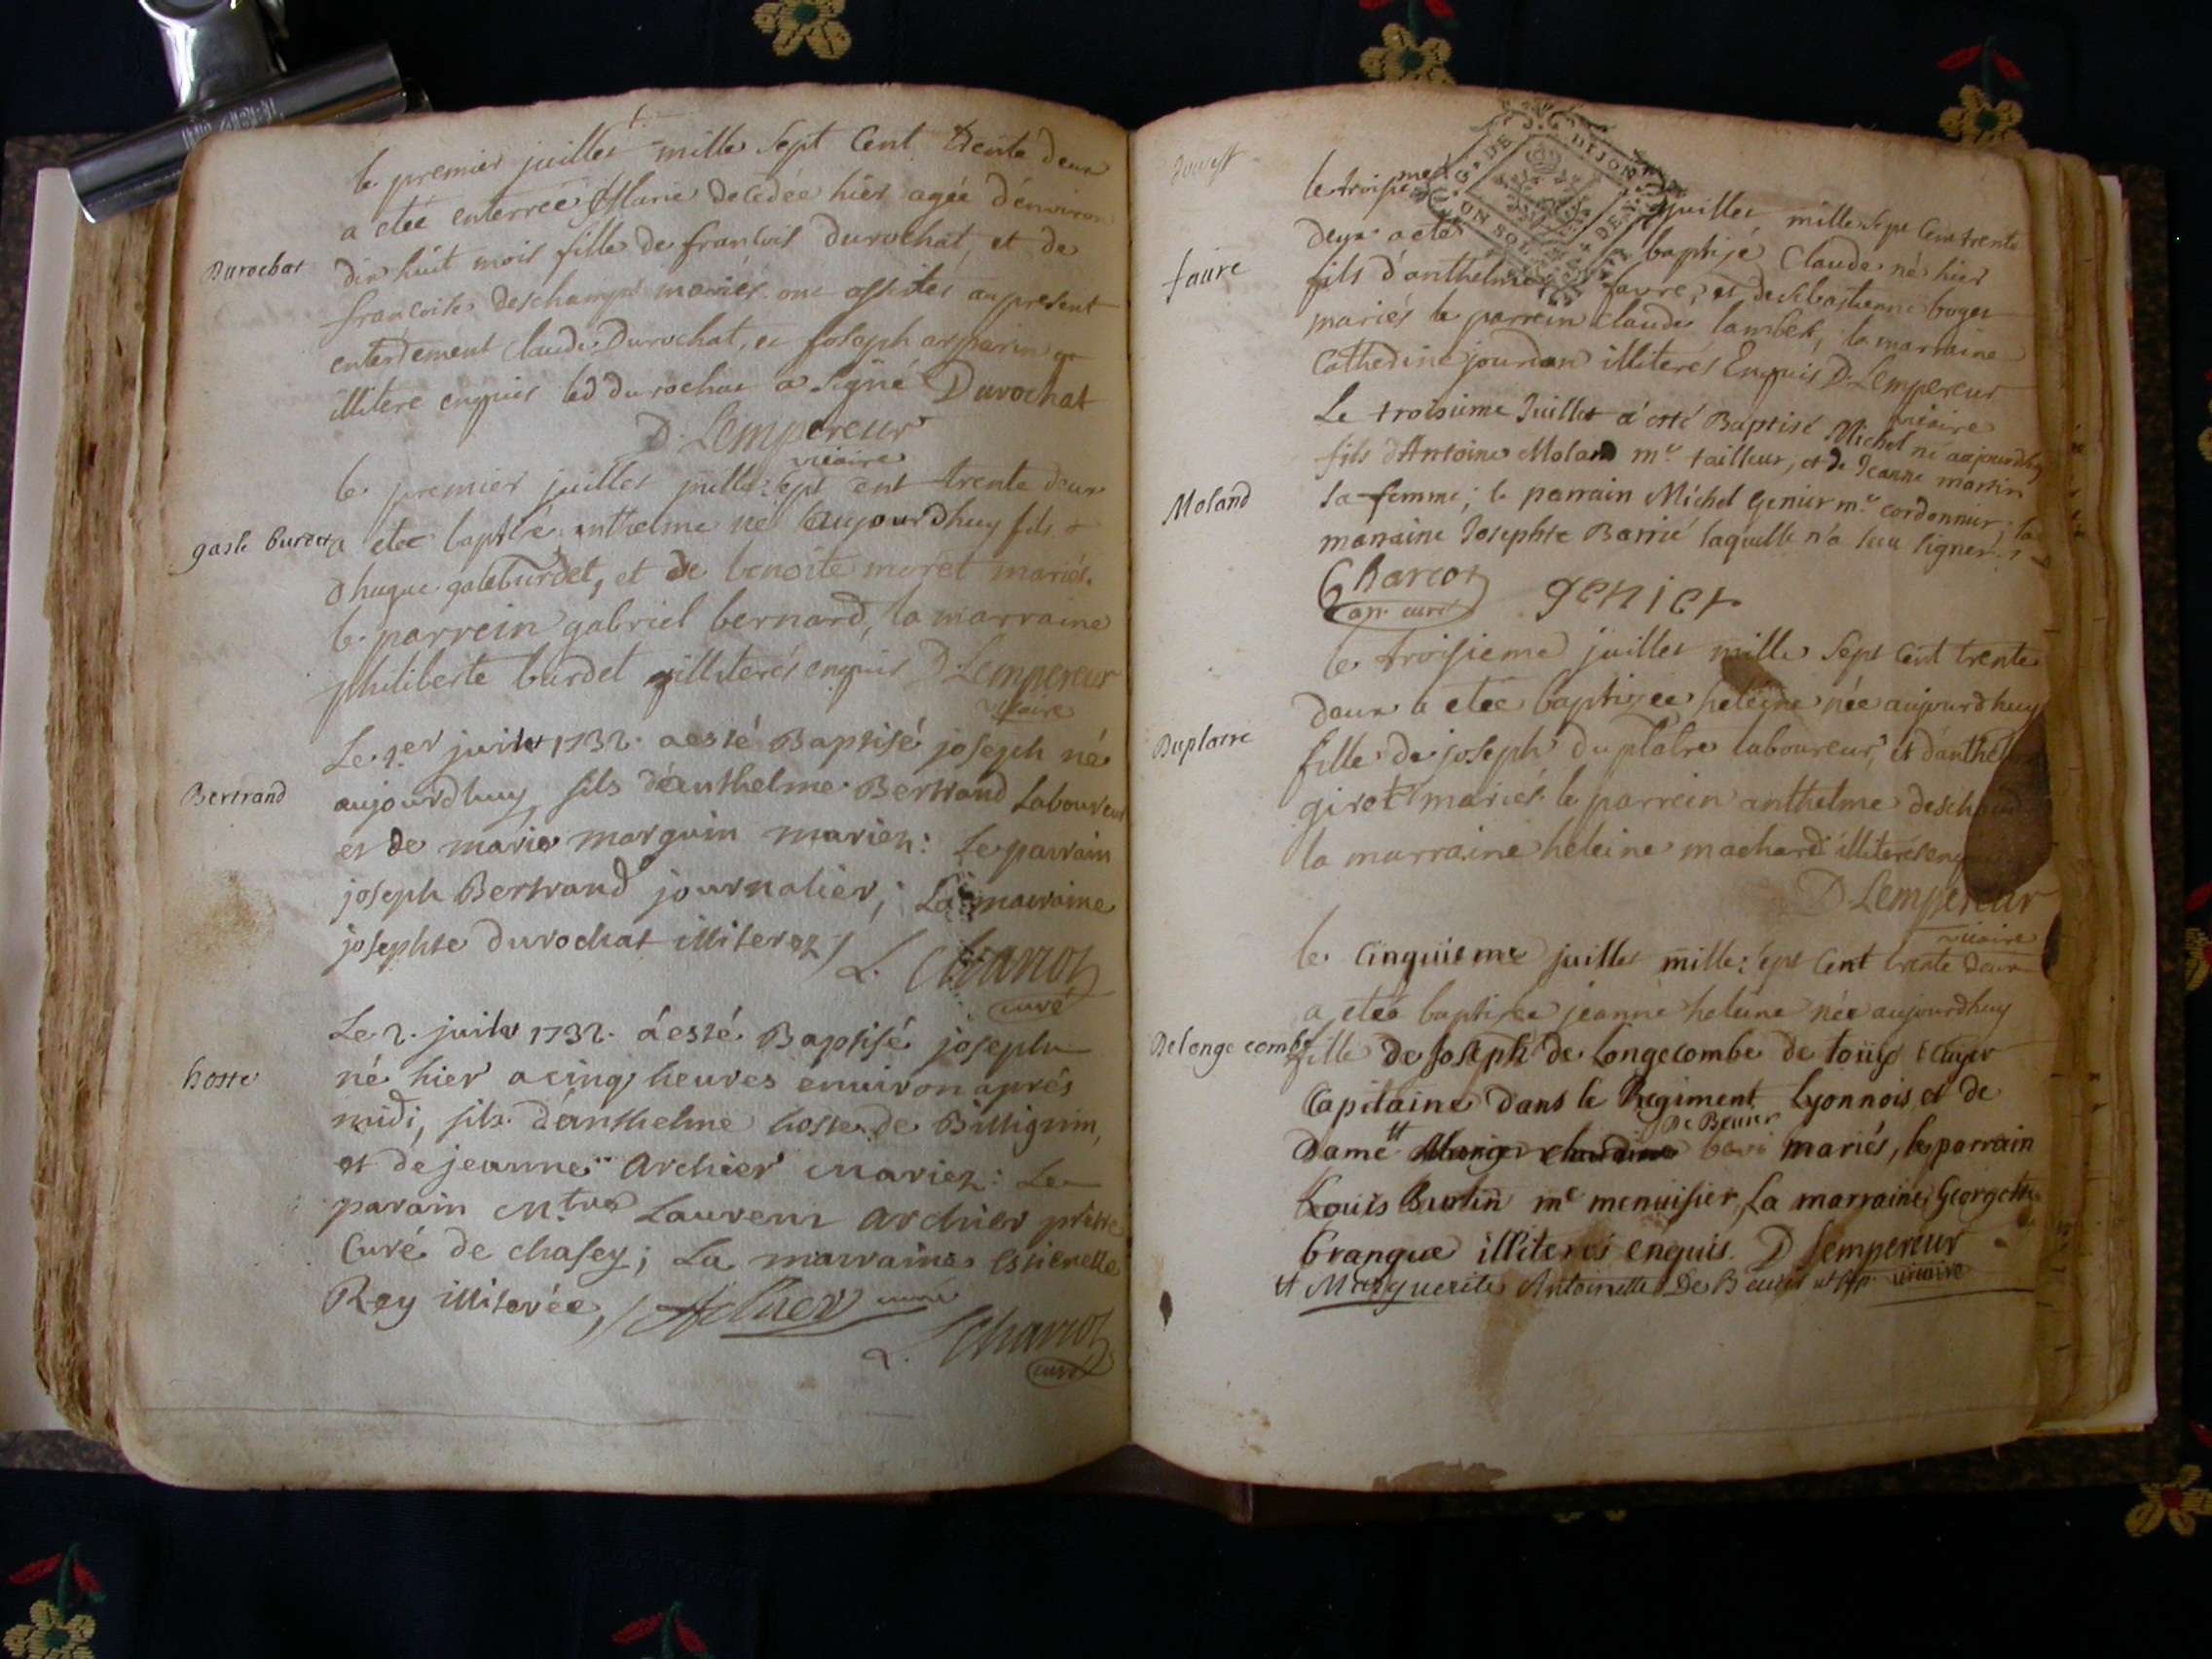 le premier juillet mille sept cent trente deux
a etée enterrée Marie decedée hier agée d'environ
Durochat
dix huit mois fille de francois durochat, et de
francoise deschamps mariés. ont assistes au present
enterrement Claude Durochat, et Joseph
illitere enquis led durochat a signé Durochat
D. Lempereur
vicaire
le premier juillet mille sept cent trente deux
gaste burdet
a etee baptisé anthelme né aujourdhuy fils
d hugue gasteburdet, et de benoite moret mariés.
le parrein gabriel bernard, la marraine
philiberte burdet illiterés enquis D. Lempereur
vicaire
Le 1.er juillet 1732. a esté Baptisé joseph né
Bertrand
aujourdhuy fils d'anthelme Bertrand Laboureur
et de marie marguin mariez: Le parrain
joseph Bertrand journalier; La marraine
josephte durochat illiterez L. Charcot
curé
Le 2. juillet 1732. a esté Baptisé joseph
hoste
né hier a cinq heures environ aprés
midi, fils d'anthelme hoste de Billignin,
et de jeanne Archier mariez: Le
parain M.tre Laurent Archier prêtre
Curé de chasey; La marraine Estienette
Rey illiterée, Archier curé
L. Charcot
curé
le troisieme juillet mille sept cent trente
G. DE DIJON
UN SOL 4 DEN
deux a eté baptisé Claude né hier
faure
fils d'anthelme favre, et de sebastienne boget
mariés le parrein Claude lambert, la marraine
Catherine jourdan illiterés Enquis D. Lempereur
vicaire
Le troisieme Juillet a esté Baptisé Michel né aujourdhuy
fils d'Antoine Moland m.e tailleur, et de Jeanne martin
Moland
sa femme; le parrain Michel Genier m.e cordonnier; la
marraine Josephte Barrié laquelle n'a sceu signer.
Charcot
curé
genier
le troisieme juillet mille sept cent trente
deux a etée baptizée heleine née aujourdhuy
Duplatre
fille de joseph duplatre laboureur, et d'anthel
girot mariés. le parrein anthelme
la marraine heleine machard illiterés
D. Lempereur
vicaire
le cinquieme juillet mille sept cent trente deux
a etée baptisée jeanne heleine née aujourdhuy
Delongecombe
fille de Joseph de Longecombe de Ecuyer
Capitaine dans le Regiment Lyonnois et de
De
Dame mariés, le parrain
Louis m.e menuisier, La marraine Georgette
branque illiterés enquis. D Lempereur
vicaire
tt Marguerite Antoinette De